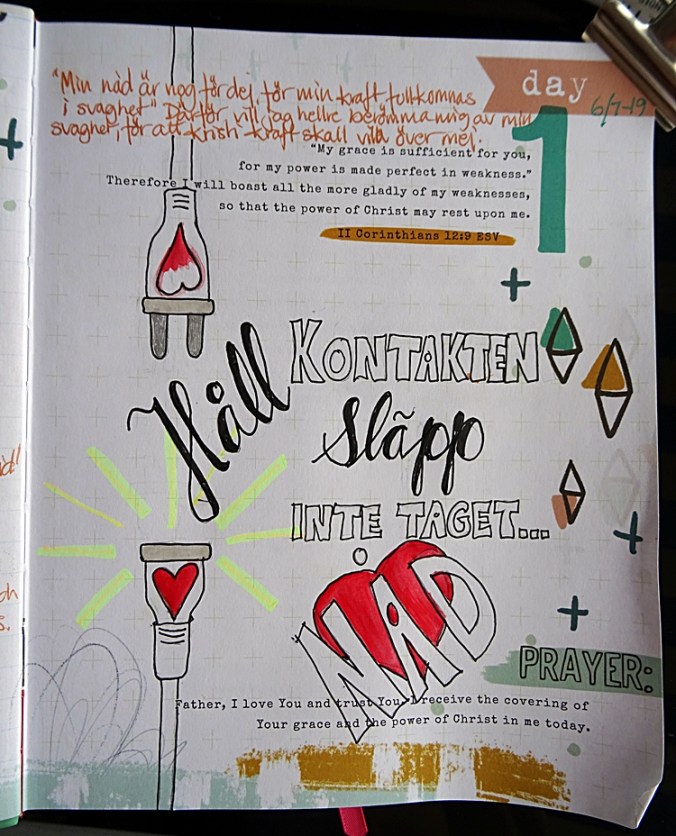 day
1
6/7-19
"Min nåd är nog för dej, för min kraft fullkomnas
i svaghet" Därför vill jag hellre berömma mig av min
svaghet, för att kraft skall vila över mej.
"My grace is sufficient for you,
for my power is made perfect in weakness."
Therefore I will boast all the more gladly of my weaknesses,
so that the power of Christ may rest upon me.
II Corinthians 12:9 ESV
Håll KONTAKTEN
släpp
INTE TAGET...
NÅD
PRAYER:
Father, I love You and trust You. I receive the covering of
Your grace and the power of Christ in me today.